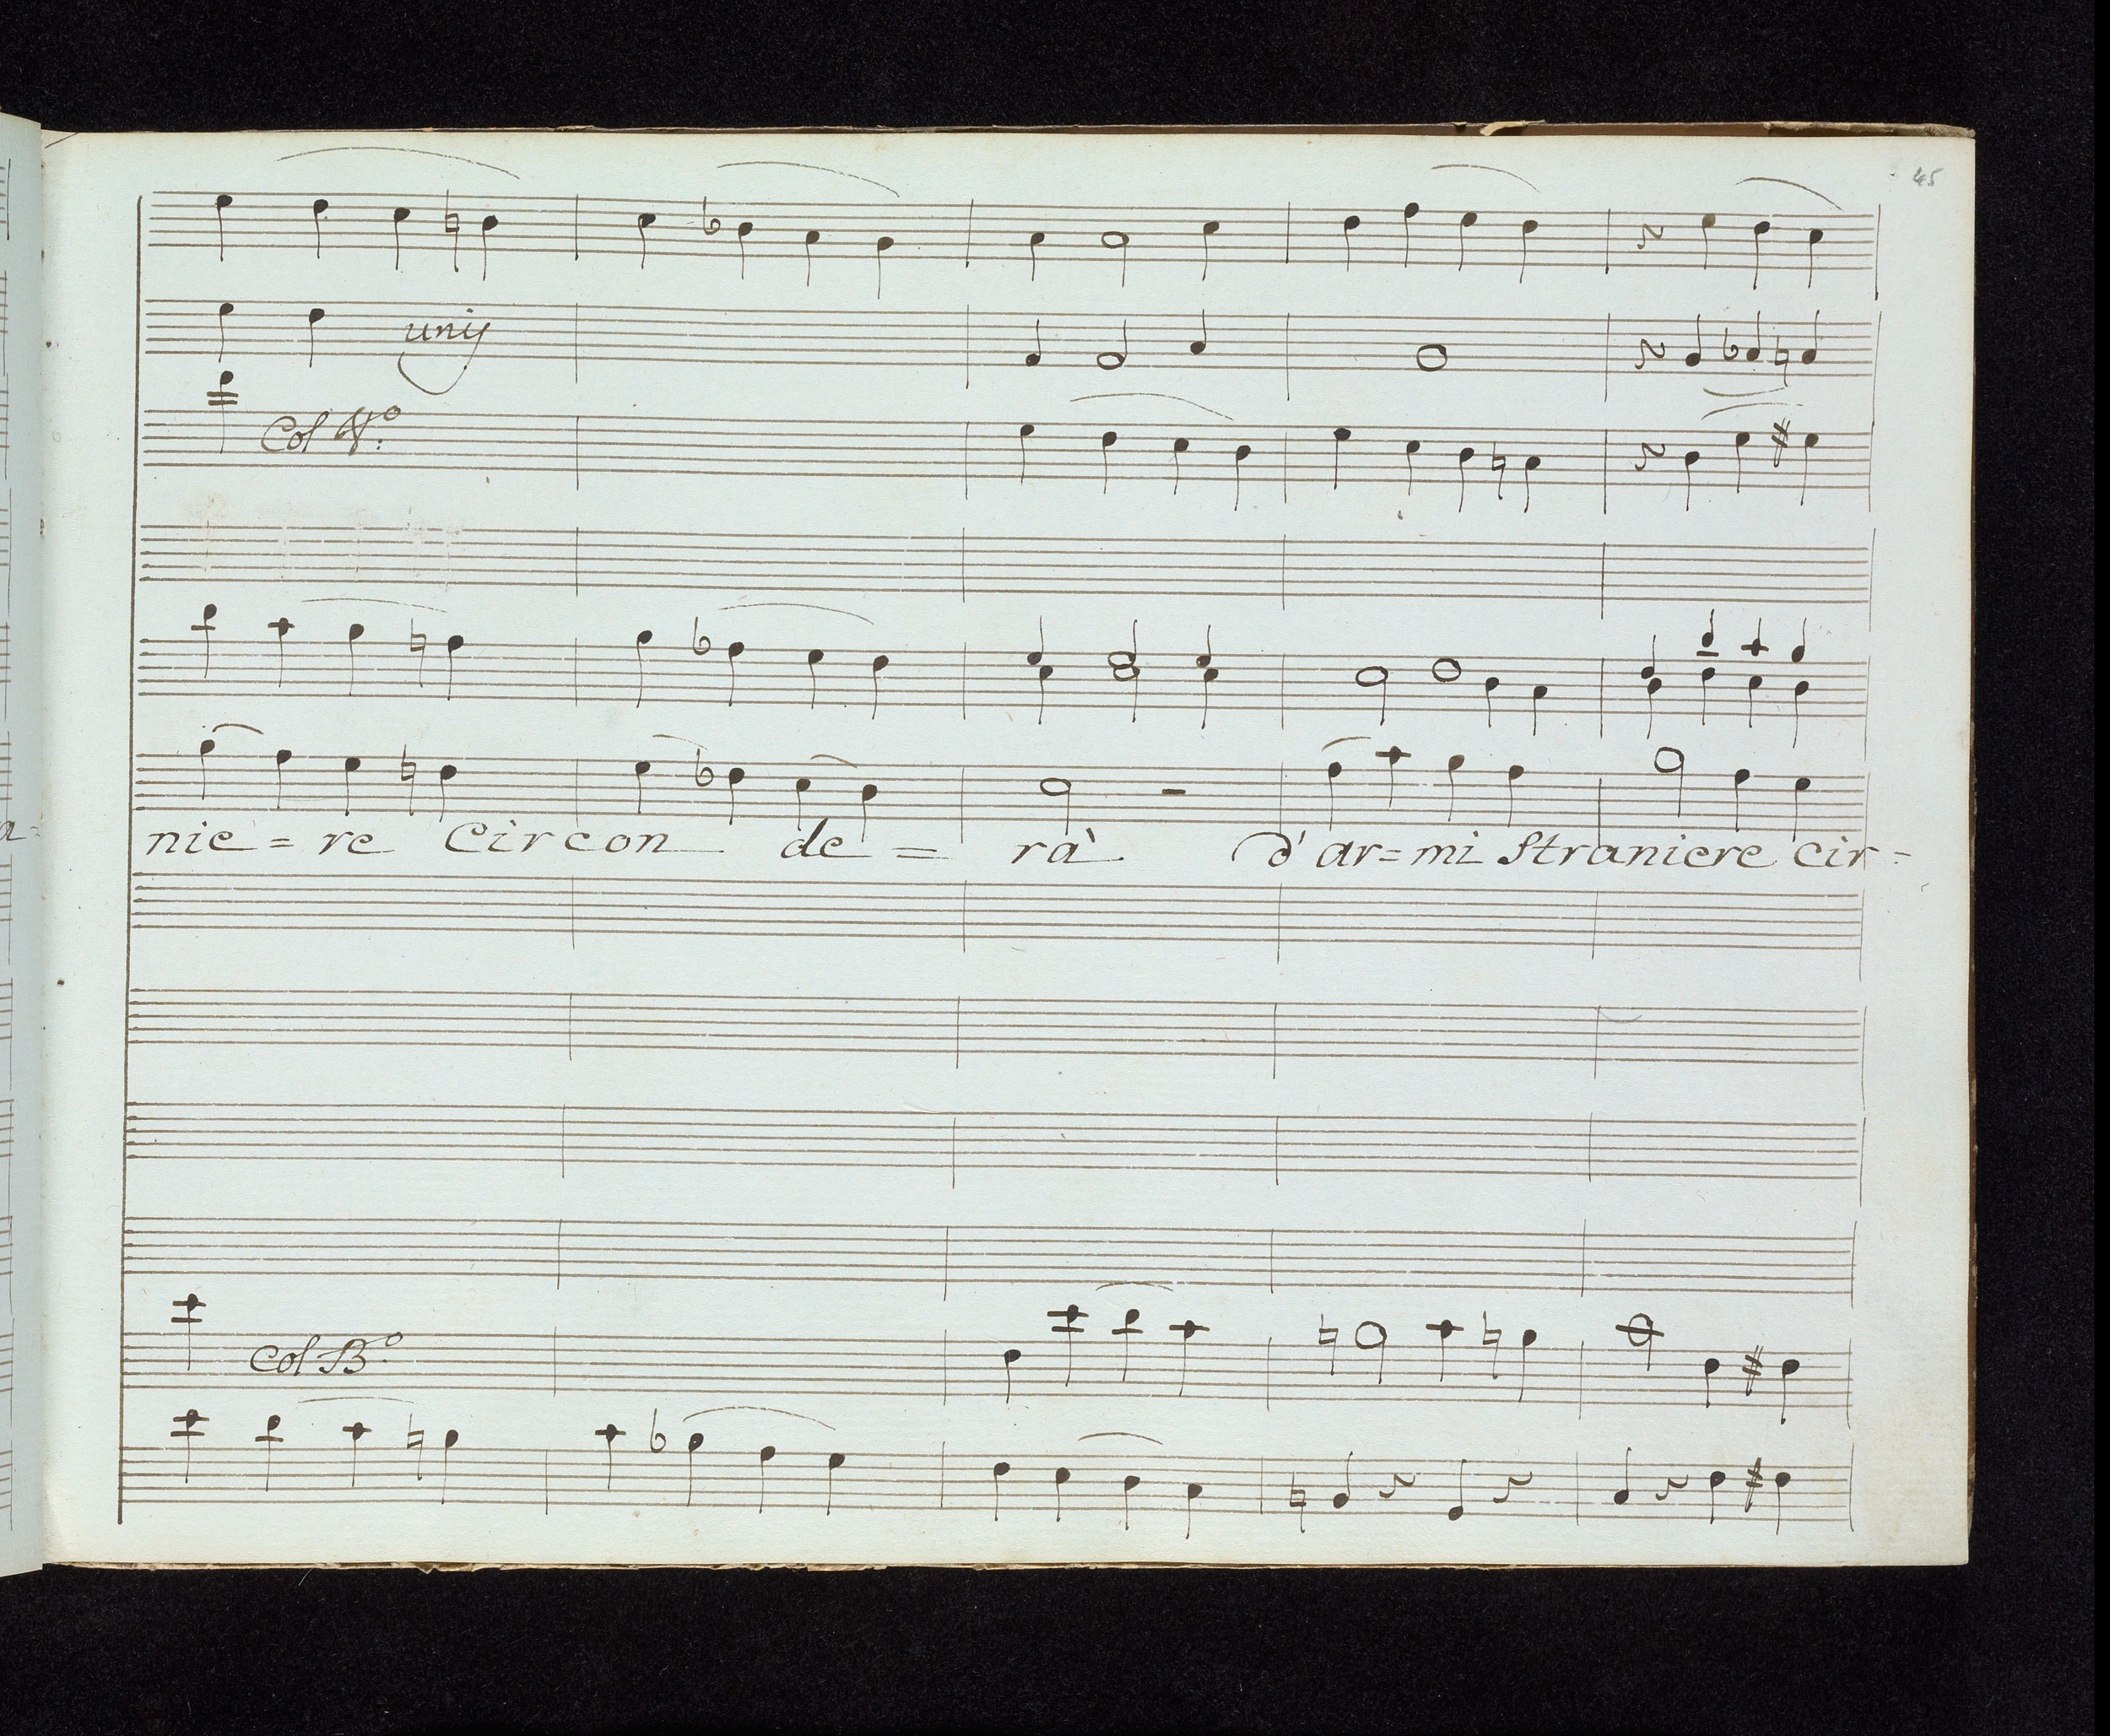 45
unis
Col Vº:
a=
nie = re Circon de = rà d'ar=mi straniere cir=
Col Bº.